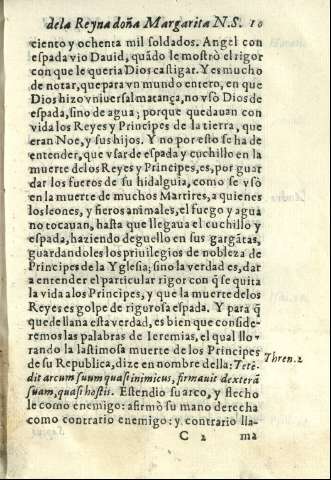 dela Reyna doña Margarita N.S. 10
ciento y ochenta mil soldados. Angel con
espada vio Dauid, quãdo le mostrò el rigor
con que le queria Dios castigar. Y es mucho
de notar, que para vn mundo entero, en que
Dios hizo vniuersal matança, no vsô Dios de
espada, sino de agua; porque quedauan con
vida los Reyes y Principes de la tierra, que
eran Noe, y sus hijos. Y no por esto se ha de
entender, que vsar de espada y cuchillo en la
muerte delos Reyes y Principes, es, por guar
dar los fueros de su hidalguia, como se vsò
en la muerte de muchos Martires, a quienes
los leones, y fieros animales, el fuego y agua
no tocauan, hasta que llegaua el cuchillo y
espada, haziendo deguello en sus gargãtas,
guardandoles los priuilegios de nobleza de
Principes de la Yglesia; sino la verdad es, dar
a entender el particular rigor con q̃ se quita
la vida a los Principes, y que la muerte delos
Reyes es golpe de rigurosa espada. Y para q̃
quede llana esta verdad, es bien que conside-
remos las palabras de Ieremias, el qual llo-
rando la lastimosa muerte de los Principes
de su Republica, dize en nombre della: Tetẽ-
dit arcum suum quasi inimicus, firmauit dexterã
suam, quasi hostis. Estendio su arco, y flecho
le como enemigo: afirmò su mano derecha
como contrario enemigo: y contrario lla-
Thren. 2
C 2 ma